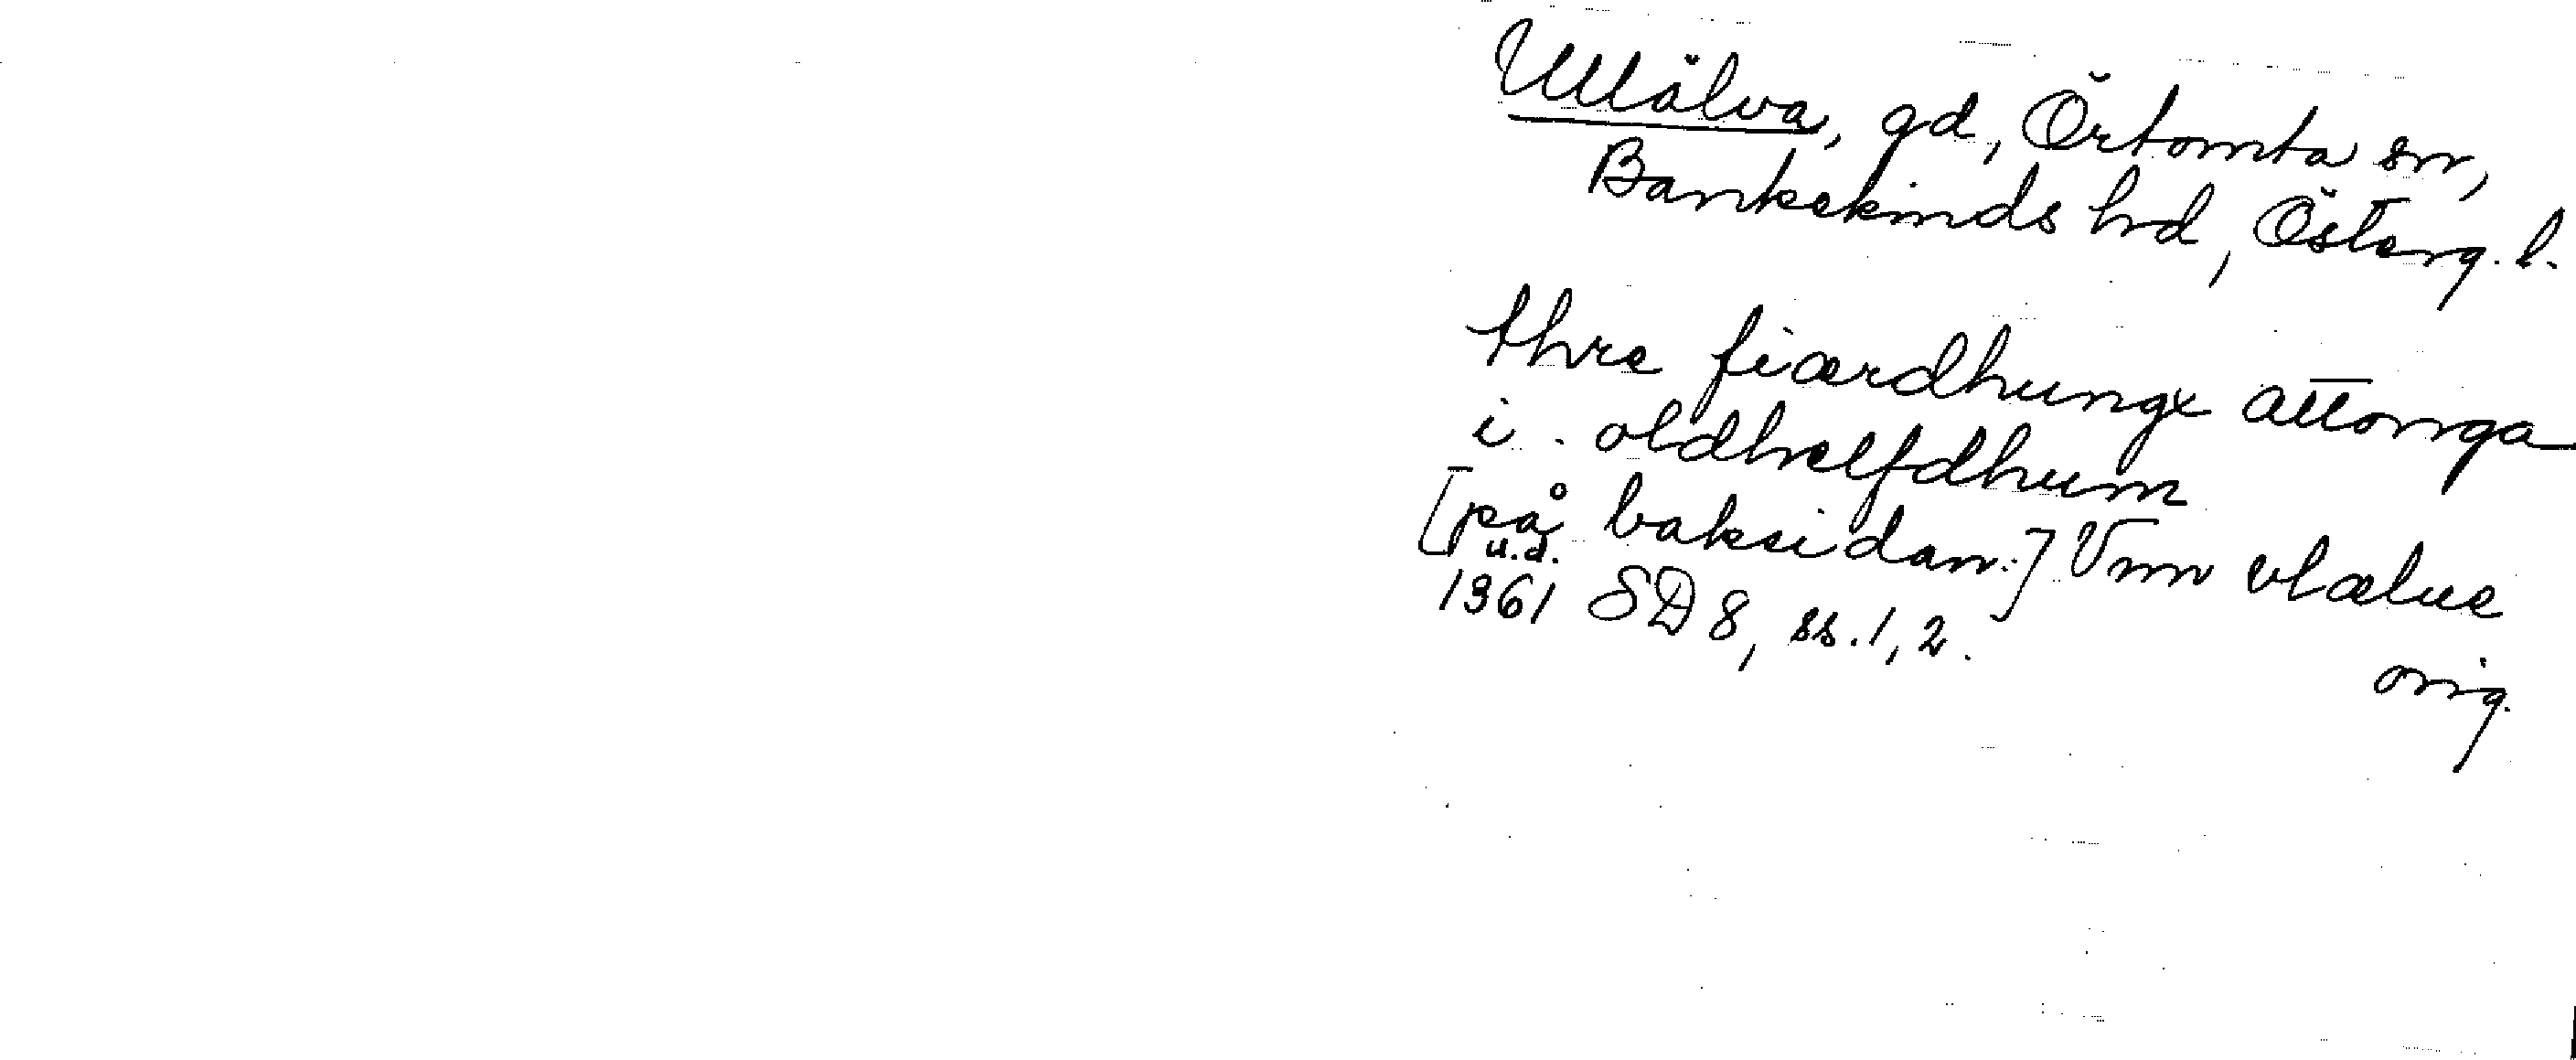 Ullälva, gd, Örtomta sn,
Bankekinds hd, Österg. l.
thre fiærdhungx attonga
i oldhælfdhum
[på baksidan:] Vm vlælue
u.d.
1361 SD 8, ss. 1, 2.
orig.